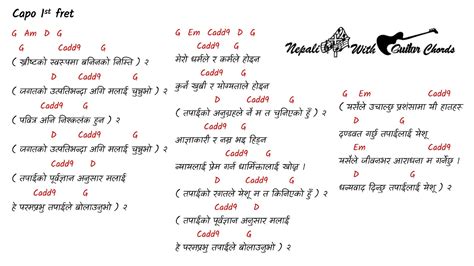 Capo 1st fret
G Am D G
G Cadd9 G
( ख्रीष्टको स्वरुपमा बनिनको निम्ति ) २
D Cadd9 G
( जगतको उत्पत्तिभन्दा अगि मलाई चुन्नुभो ) २
G Cadd9 G
( पवित्र अनि निष्कलंक हुन )
D Cadd9 G
( जगतको उत्पत्तिभन्दा अगि मलाई चुन्नुभो ) २
Cadd9 D
( तपाईंको पूर्वज्ञान अनुसार मलाई
Cadd9 G
हे परमप्रभु तपाईंले बोलाउनुभो ) २
G Em Cadd9 D G
मेरो धर्मले र कर्मले होइन
Cadd9 G
कुनै खुबी र योग्यताले होइन
D Cadd9 G
( तपाईंको अनुग्रहले नै म त चुनिएको हुँ ) २
Cadd9 G
आज्ञाकारी र नम्र भइ हिड्न
Cadd9 G
न्यायलाई प्रेम गर्न धार्मिकतालाई खोज्न ।
D Cadd9 G
( तपाईंको रगतले मोल म त किनिएको हुँ ) २
Cadd9 D
( तपाईंको पूर्वज्ञान अनुसार मलाई
Cadd9 G
हे परमप्रभु तपाईंले बोलाउनुभो ) २
Nepali With Guitar Chords
G Cadd9 G
( यसैले उचाल्छु प्रशंसामा यी हातहरू
D G
दण्डवत गर्छु तपाईंलाई येशू
Em Cadd9
यसैले जीवनभर आराधना म गर्नेछु ।
D G
धन्यवाद दिन्छु तपाईंलाई येशू ) २